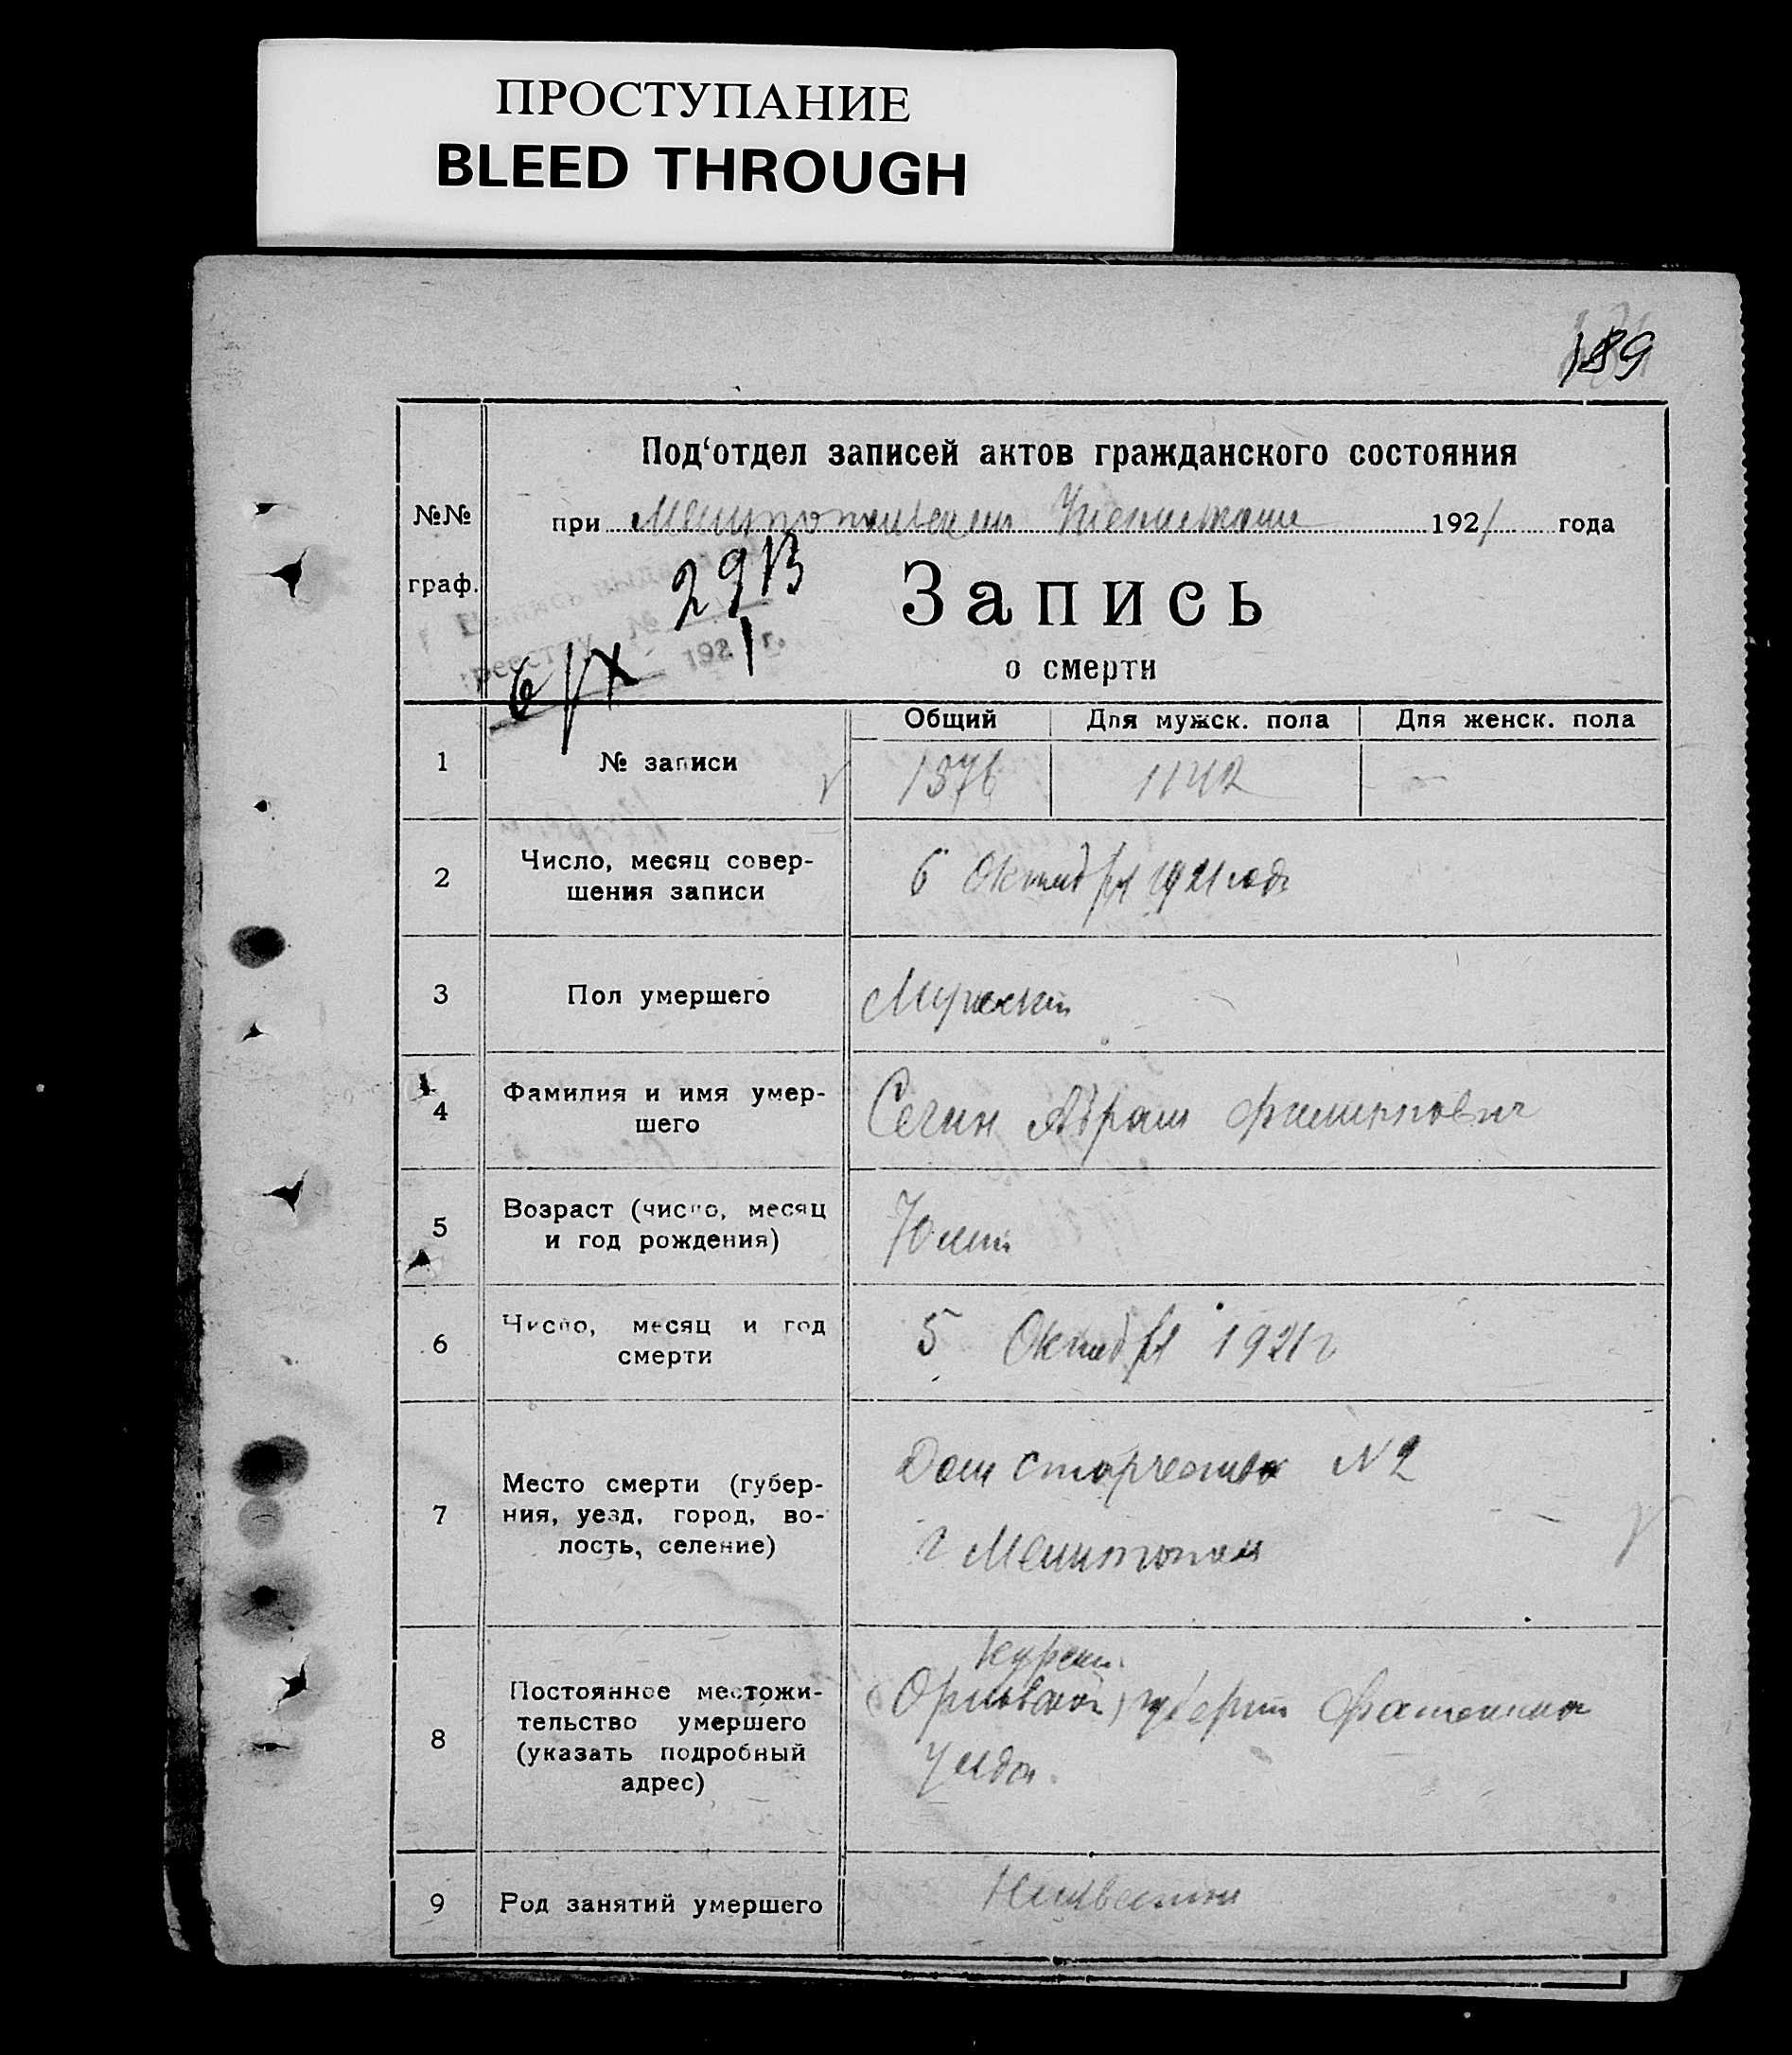 ПРОСТУПАНИЕ
BLEED THROUGH
189
Под‘отдел записей актов гражданского состояния
№№
при Мелитопольском 1921 года
граф.
29В
Запись
реестру № 1921 г.
6/X
о смерти
Общий Для мужск. пола Для женск. пола
1 № записи 1376 1142 —
2 Число, месяц совер-
шения записи
6 Октября 1921 года
3 Пол умершего Мужской
4 Фамилия и имя умер-
шего
Сечин Абрам Филиппович
5 Возраст (число, месяц
и год рождения)
70 лет
6 Число, месяц и год
смерти
5 Октября 1921 г
7 Место смерти (губер-
ния, уезд, город, во-
лость, селение)
Дом старчества N 2
г Мелитополь
8 Постоянное местожи-
тельство умершего
(указать подробный
адрес)
Курск.
(Орловской) губерни
уезда
9 Род занятий умершего Неизвестно